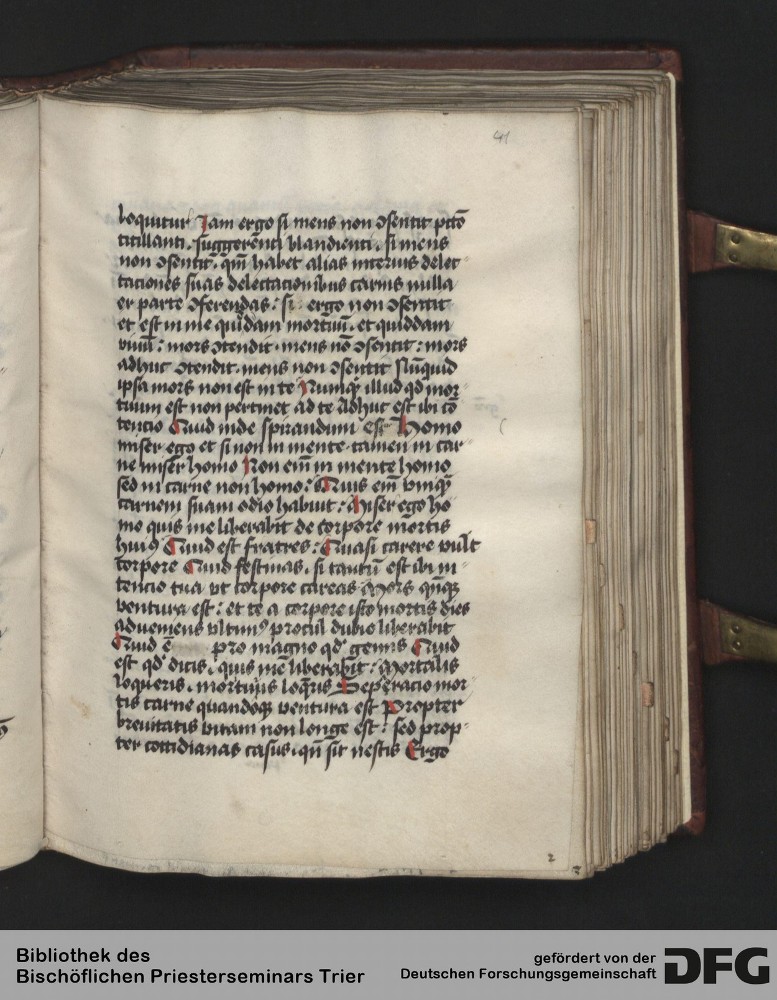 41
loquitur Jam ergo si mens non ɔsentit pctō
titillanti. suggerenti blandienti. si mens
non ɔsentit. qm̄ habet alias interius delec
tationes suas delectacionibus carnis nulla
ex parte ɔferendas: si ergo non ɔsentit
et est in me quiddam mortuū. et quiddam
viuū: mors ɔtendit. mens nō ɔsentit: mors
adhuc ɔtendit. mens non ɔsentit Nūquid
ipsa mors non est in te Numqͥd illud qd mor
tuum est non pertinet ad te Adhuc est ibi cō
tencio Quid inde spirandum est Homo
miser ego et si non in mente tamen in car
ne miser homo Non em̄ in mente homo
sed in carne non homo: Quis em̄ vnqͣ
carnem suam odio habuit: Miser ego ho
mo quis me liberabit de corpore mortis
huiꝰ Quid est fratres: Quasi carere vult
corpore Quid festinas. si tantū est ibi in
tencio tua vt corpore careas Mors qn̄qꝫ
ventura est: et te a corpore isto mortis dies
adueniens vltimꝰ procul dubio liberabit
Quid ē pro magno qd gemis Quid
est qd dicis. quis me liberabit: Mortalis
loqueris. moriturus loqͥris Seperacio mor
tis carne quandoqꝫ ventura est Propter
breuitatis vitam non longe est: sed prop
ter cottidianas casus. qn̄ sit nescis Ergo
2
Bibliothek des
Bischöflichen Priesterseminars Trier
gefördert von der
Deutschen Forschungsgemeinschaft
DFG